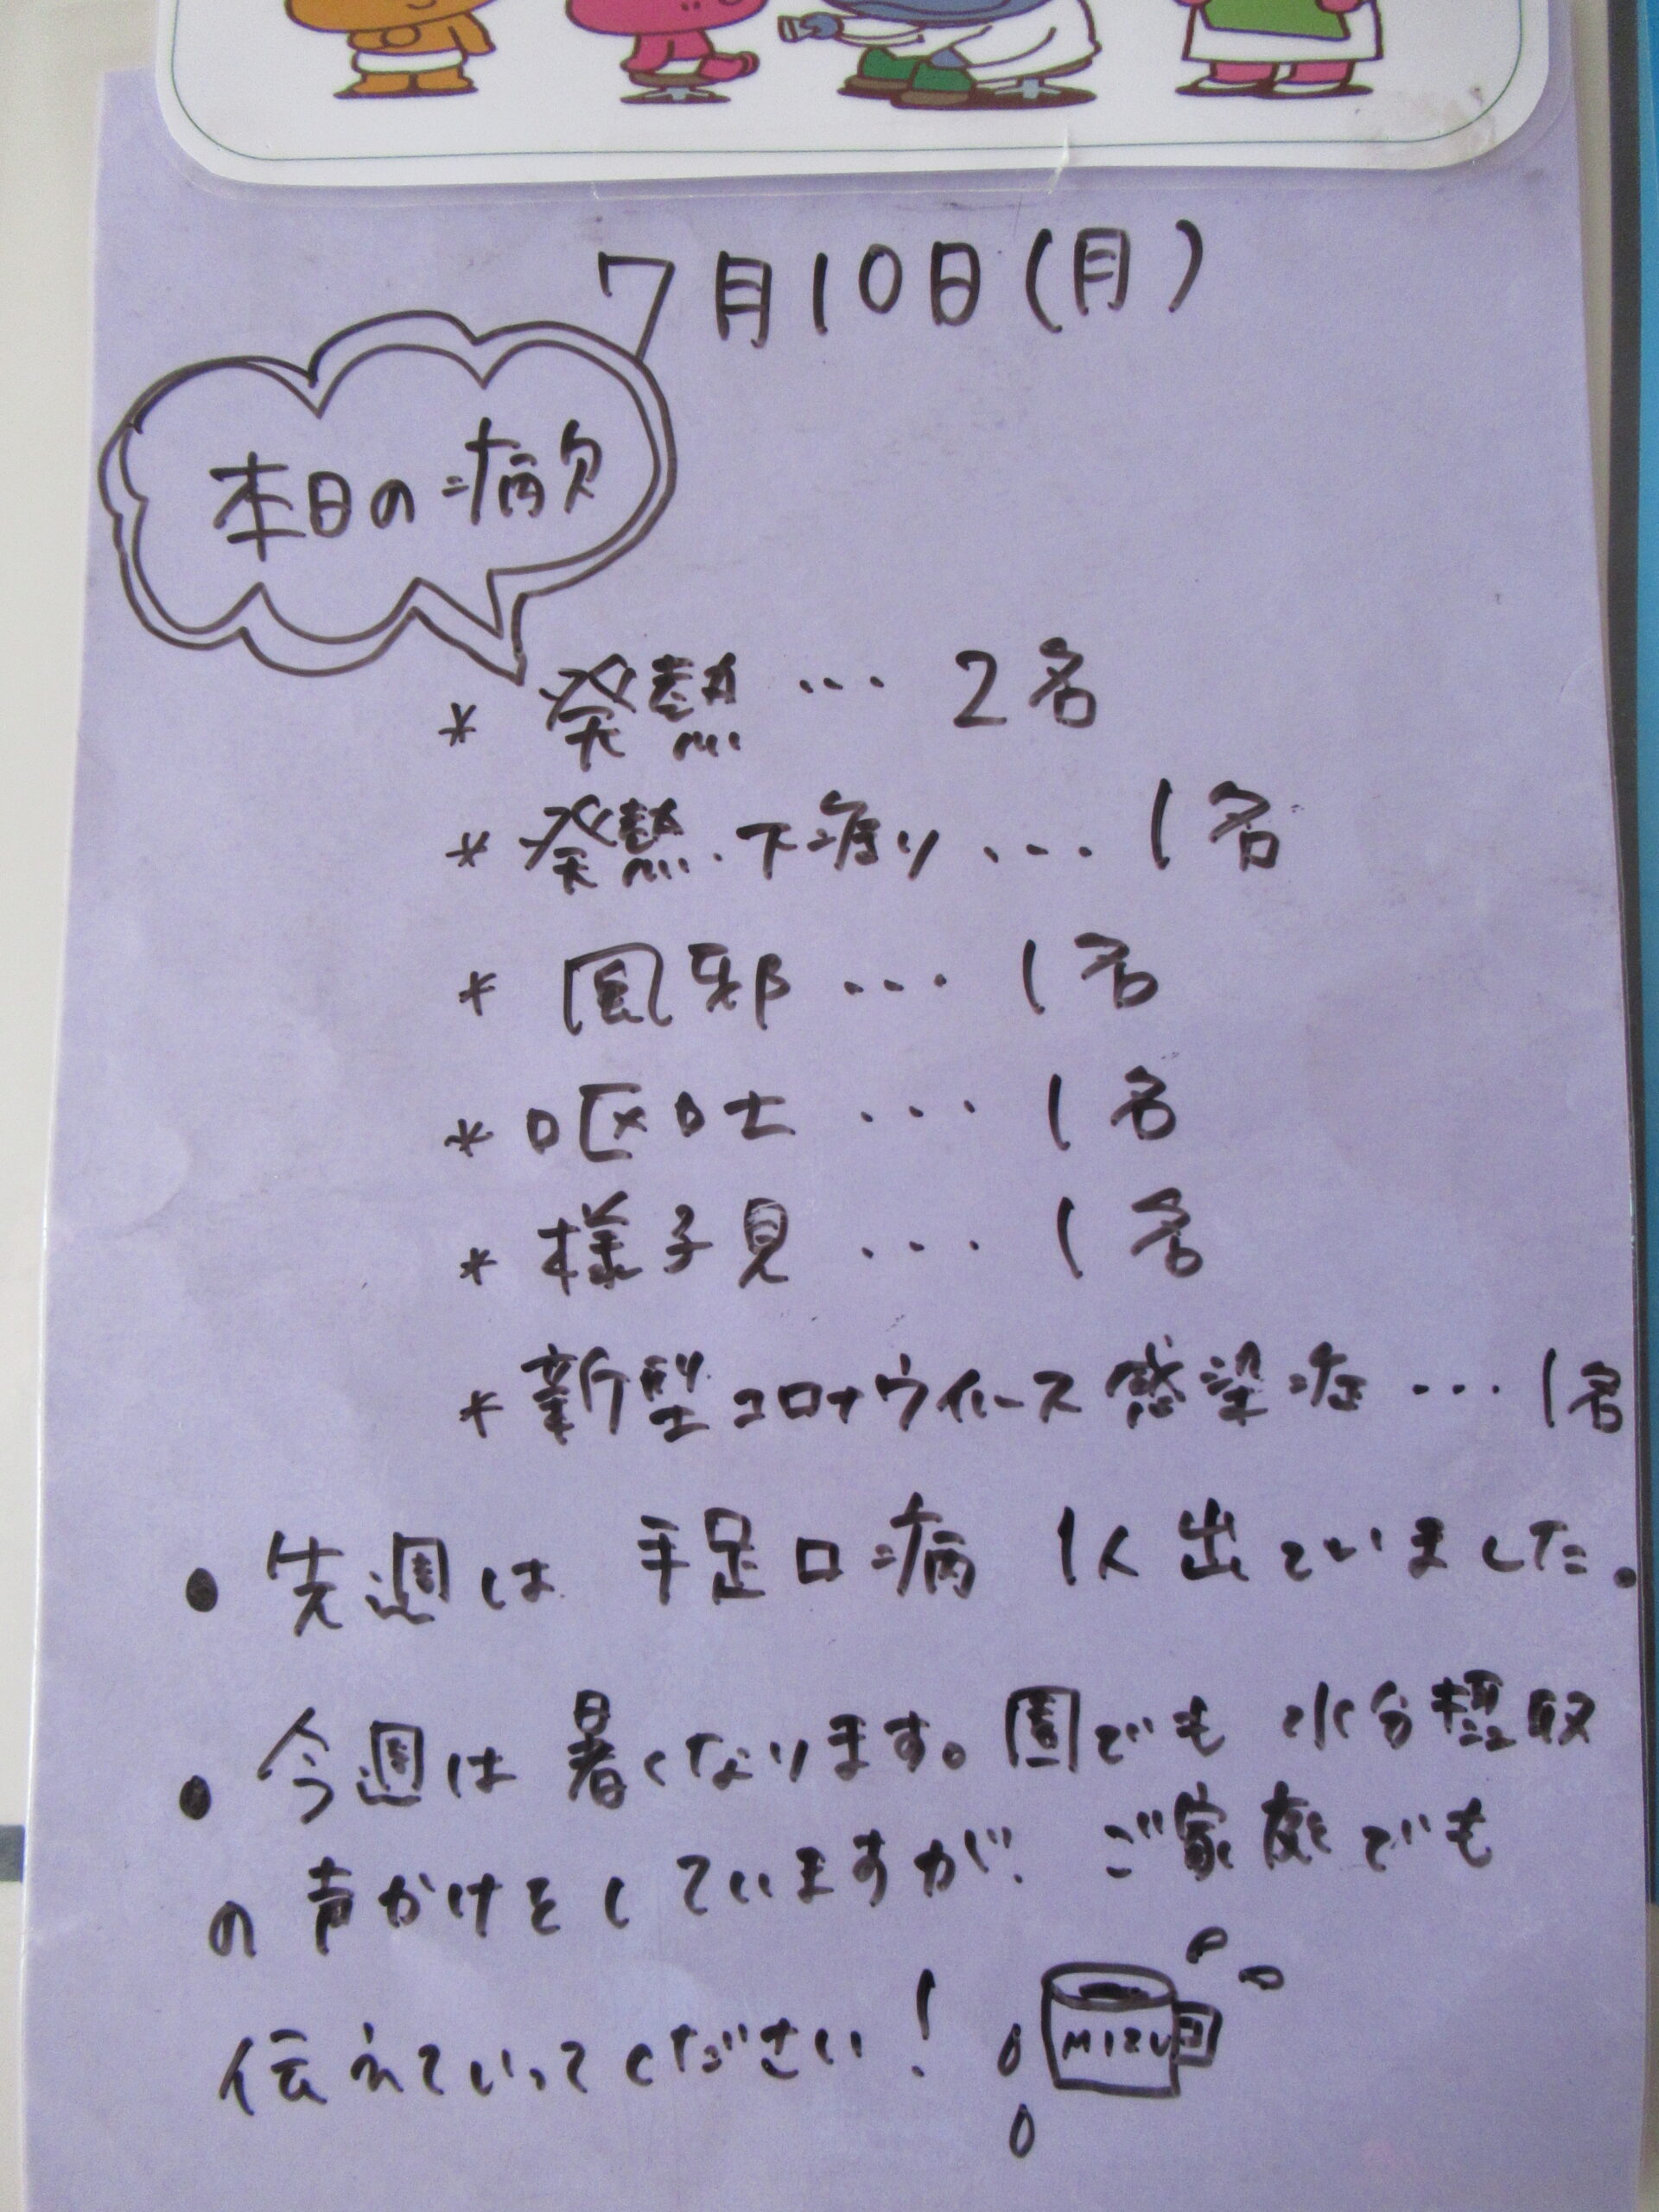 7月10日(月)
本日の病欠
* 発熱 … 2名
* 発熱・下痢り … 1名
* 風邪 … 1名
* 嘔吐 … 1名
* 様子見 … 1名
* 新型コロナウイルース感染症 … 1名
● 先週は 手足口病 1人出ていました。
● 今週は 暑くなります。園でも 水分摂取
の声かけをしていますが、ご家庭でも
伝えていってください!
MIZU